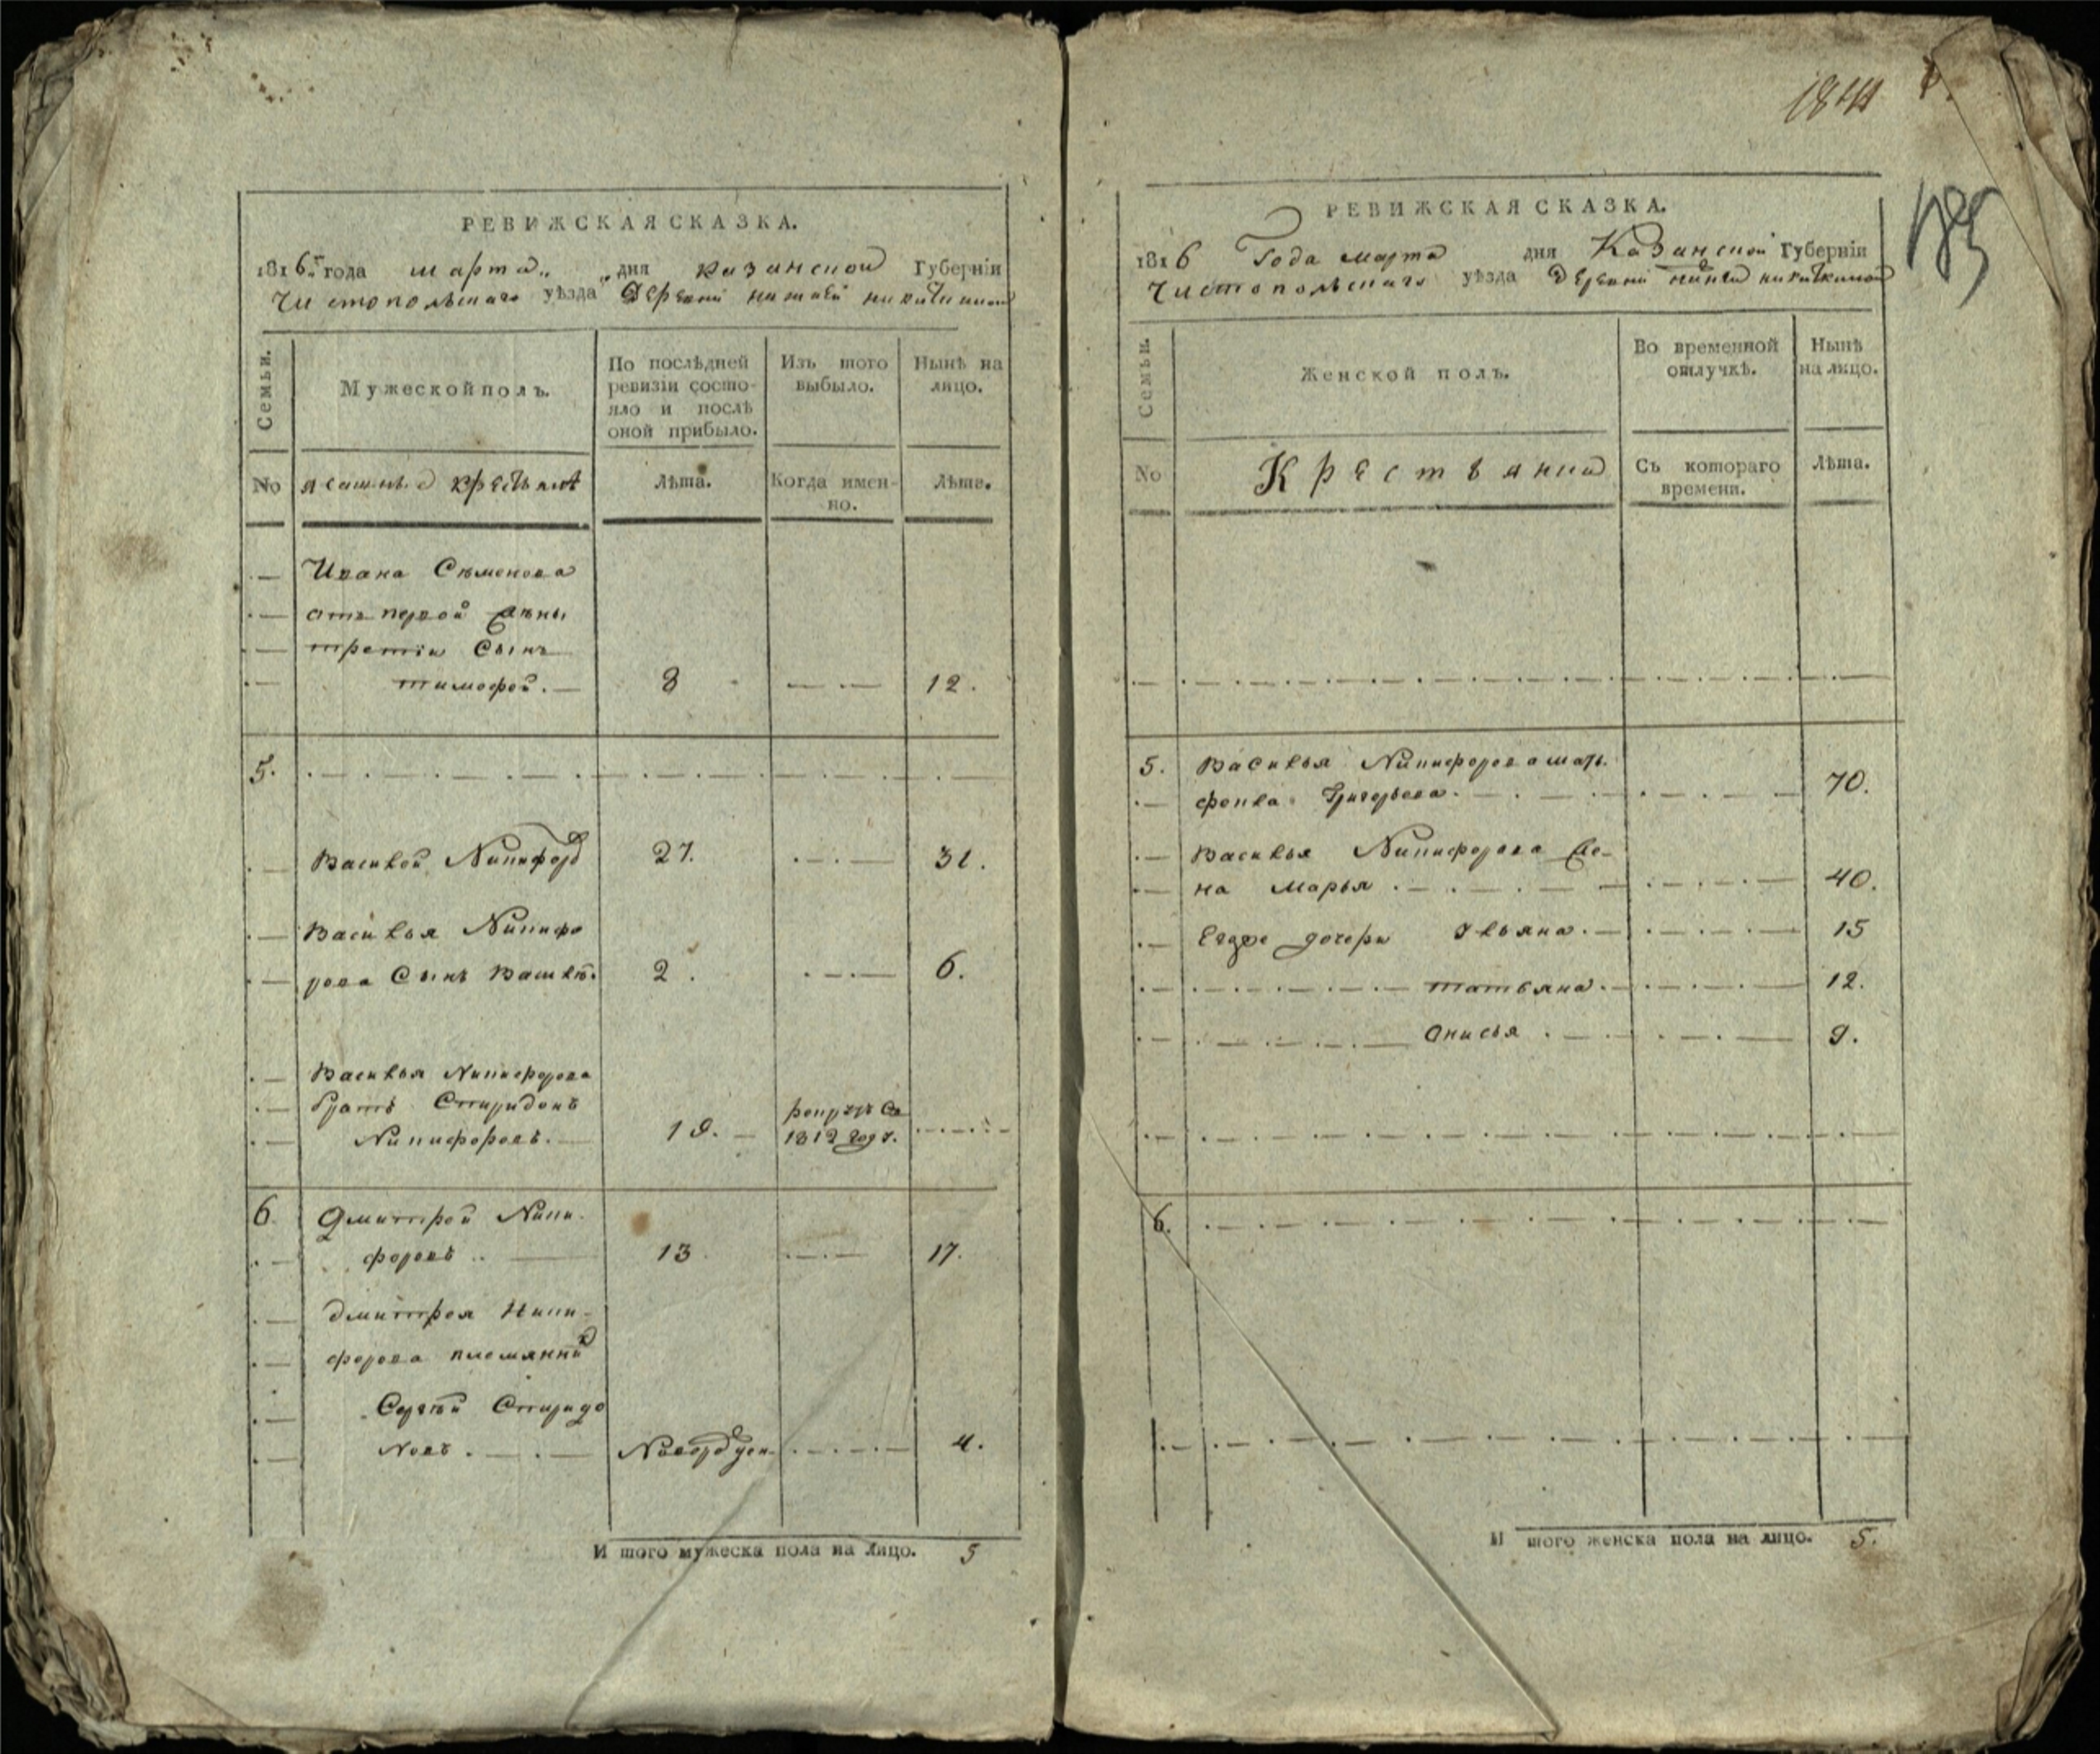 РЕВИЖСКАЯ СКАЗКА.
1816 года марта дня казанской Губерніи
Чистопольскаго уѣзда деревни нижней никиткиной
Семьи.
Мужеской полъ.
По послѣдней ревизіи состо-
яло и послѣ
оной прибыло.
Изъ того
выбыло.
Нынѣ на
лицо.
No
ясашные крестьяне
Лѣта.
Когда имен-
но.
Лѣта.
Ивана Семенова
отъ первой жены
третій Сынъ
тимофей. 8 12.
5.
Василей Никифоровъ 27. 31.
Василья Никифо
рова Сынъ Василей. 2. 6.
Василья Никифорова
братъ Спиридонъ
Никифоровъ. 19. рекрутъ въ
1812 году.
6. Дмитрей Ники
форовъ 13 17.
дмитрея Ники-
форова племянникъ
Сергѣй Спиридо
новъ. Новорожден. 4.
И того мужеска пола на лицо. 5
1844
185
РЕВИЖСКАЯ СКАЗКА.
1816 Года марта дня Казанской Губерніи
Чистопольскаго уѣзда деревни нижней никиткиной
Семьи.
Женской полъ.
Во временной
отлучкѣ.
Нынѣ
на лицо.
No
Крестьянки
Съ котораго
времени.
Лѣта.
5. Василья Никифорова мать
фекла Григорьева. 70.
Василья Никифорова же-
на Марья. 40.
Егоже дочери Ульяна. 15
татьяна. 12.
Анисья. 9.
6.
И того женска пола на лицо. 5.